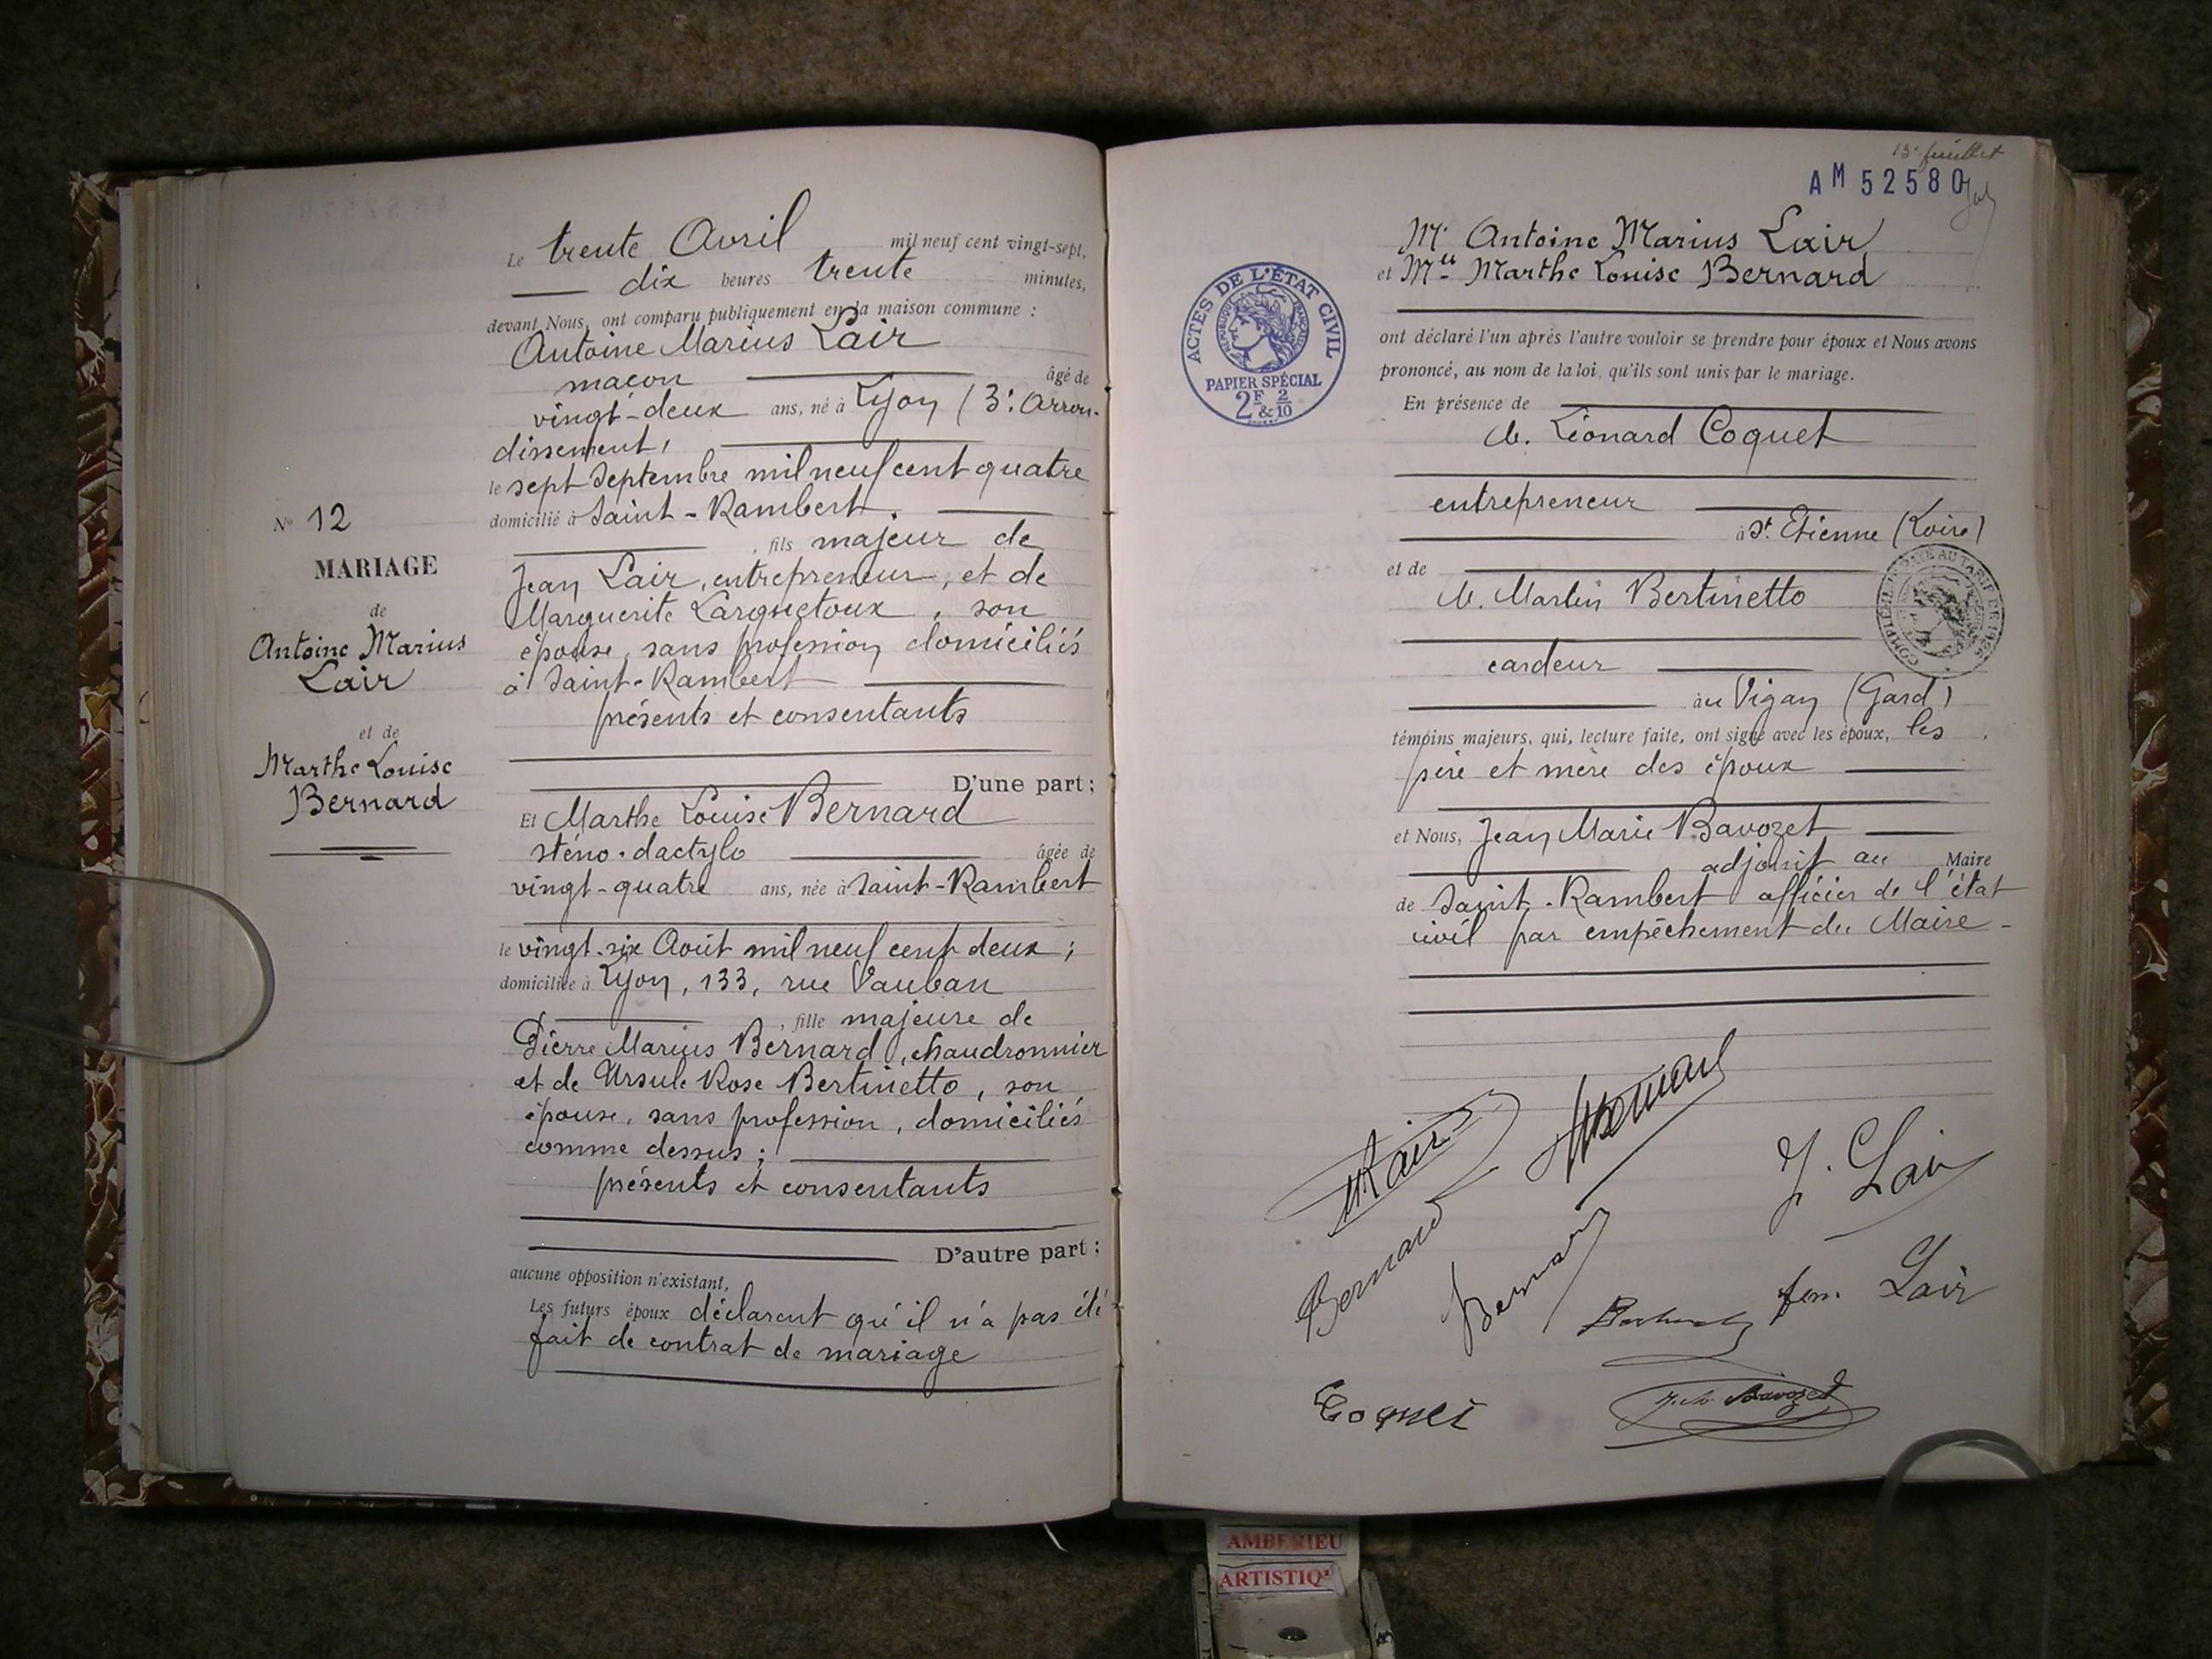 Le trente Avril mil neuf cent vingt-sept,
dix heures trente minutes,
devant Nous, ont comparu publiquement en la maison commune :
Antoine Marius Lair
maçon âgé de
vingt-deux ans, né à Lyon (3e Arron-
dissement,
le sept Septembre mil neuf cent quatre
domicilié à Saint-Rambert.
, fils majeur de
Jean Lair, entrepreneur, et de
Marguerite Larguetoux, son
épouse, sans profession domiciliés
à Saint-Rambert
présents et consentants
D'une part ;
Et Marthe Louise Bernard
sténo-dactylo âgée de
vingt-quatre ans, née à Saint-Rambert
le vingt-six Août mil neuf cent deux ;
domiciliée à Lyon, 133, rue Vauban
, fille majeure de
Pierre Marius Bernard, chaudronnier
et de Ursule Rose Bertinetto, son
épouse, sans profession, domiciliés
comme dessus ;
présents et consentants
D'autre part ;
aucune opposition n'existant,
Les futurs époux déclarent qu'il n'a pas été
fait de contrat de mariage
No 12
MARIAGE
de
Antoine Marius
Lair
et de
Marthe Louise
Bernard
13e feuillet
AM 52580
Mr Antoine Marius Lair
et Mlle Marthe Louise Bernard
ont déclaré l'un après l'autre vouloir se prendre pour époux et Nous avons
prononcé, au nom de la loi, qu'ils sont unis par le mariage.
En présence de
M. Léonard Coquet
entrepreneur
à St. Etienne (Loire)
et de
M. Martin Bertinetto
cardeur
au Vigan (Gard)
témoins majeurs, qui, lecture faite, ont signé avec les époux, les
père et mère des époux
et Nous, Jean Marie Bavozet
adjoint au Maire
de Saint-Rambert officier de l'état
civil par empêchement du Maire -
ACTES DE L'ÉTAT CIVIL
RÉPUBLIQUE FRANÇAISE
PAPIER SPÉCIAL
2F & 2/10
Lair
Bernard
J. Lair
Bernard
Bernard
fem. Lair
Coquet
J. M. Bavozet
AMBERIEU
ARTISTIQ